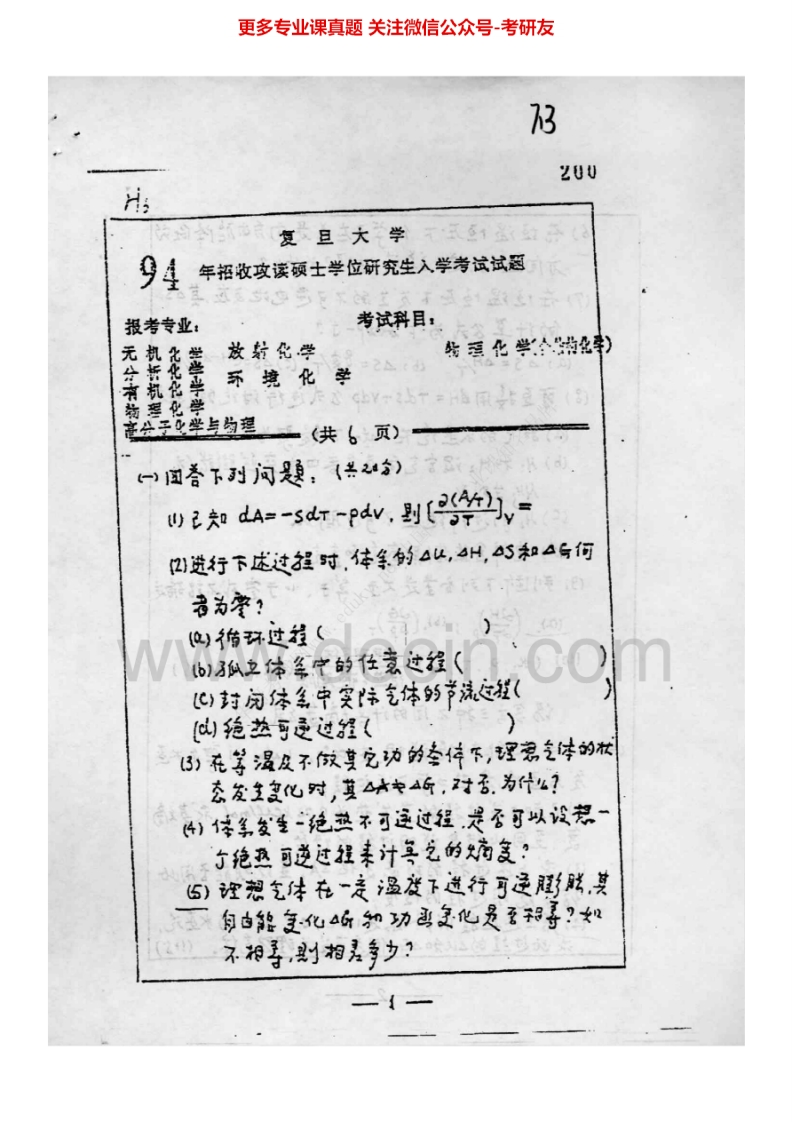 更多专业课真题 关注微信公众号-考研友
713
200
H3
复旦大学
94年招收攻读硕士学位研究生入学考试试题
报考专业： 考试科目：
无机化学 放射化学 物理化学(含结构化学)
分析化学 环境化学
有机化学
物理化学
高分子化学与物理
(共6页)
(一)回答下列问题：(共20分)
(1)已知 dA=-SdT-pdV，则[∂(A/T)/∂T]V=
(2)进行下述过程时，体系的ΔU，ΔH，ΔS和ΔG何
者为零？
(a)循环过程( )
(b)孤立体系中的任意过程( )
(c)封闭体系中实际气体的节流过程( )
(d)绝热可逆过程( )
(3)在等温及不做其它功的条件下，理想气体的状
态发生变化时，其ΔA=ΔG，对否，为什么？
(4)体系发生一绝热不可逆过程，是否可以设想一
个绝热可逆过程来计算它的熵变？
(5)理想气体在一定温度下进行可逆膨胀，其
自由能变化ΔG和功函变化是否相等？如
不相等，则相差多少？
www.docin.com
— 1 —